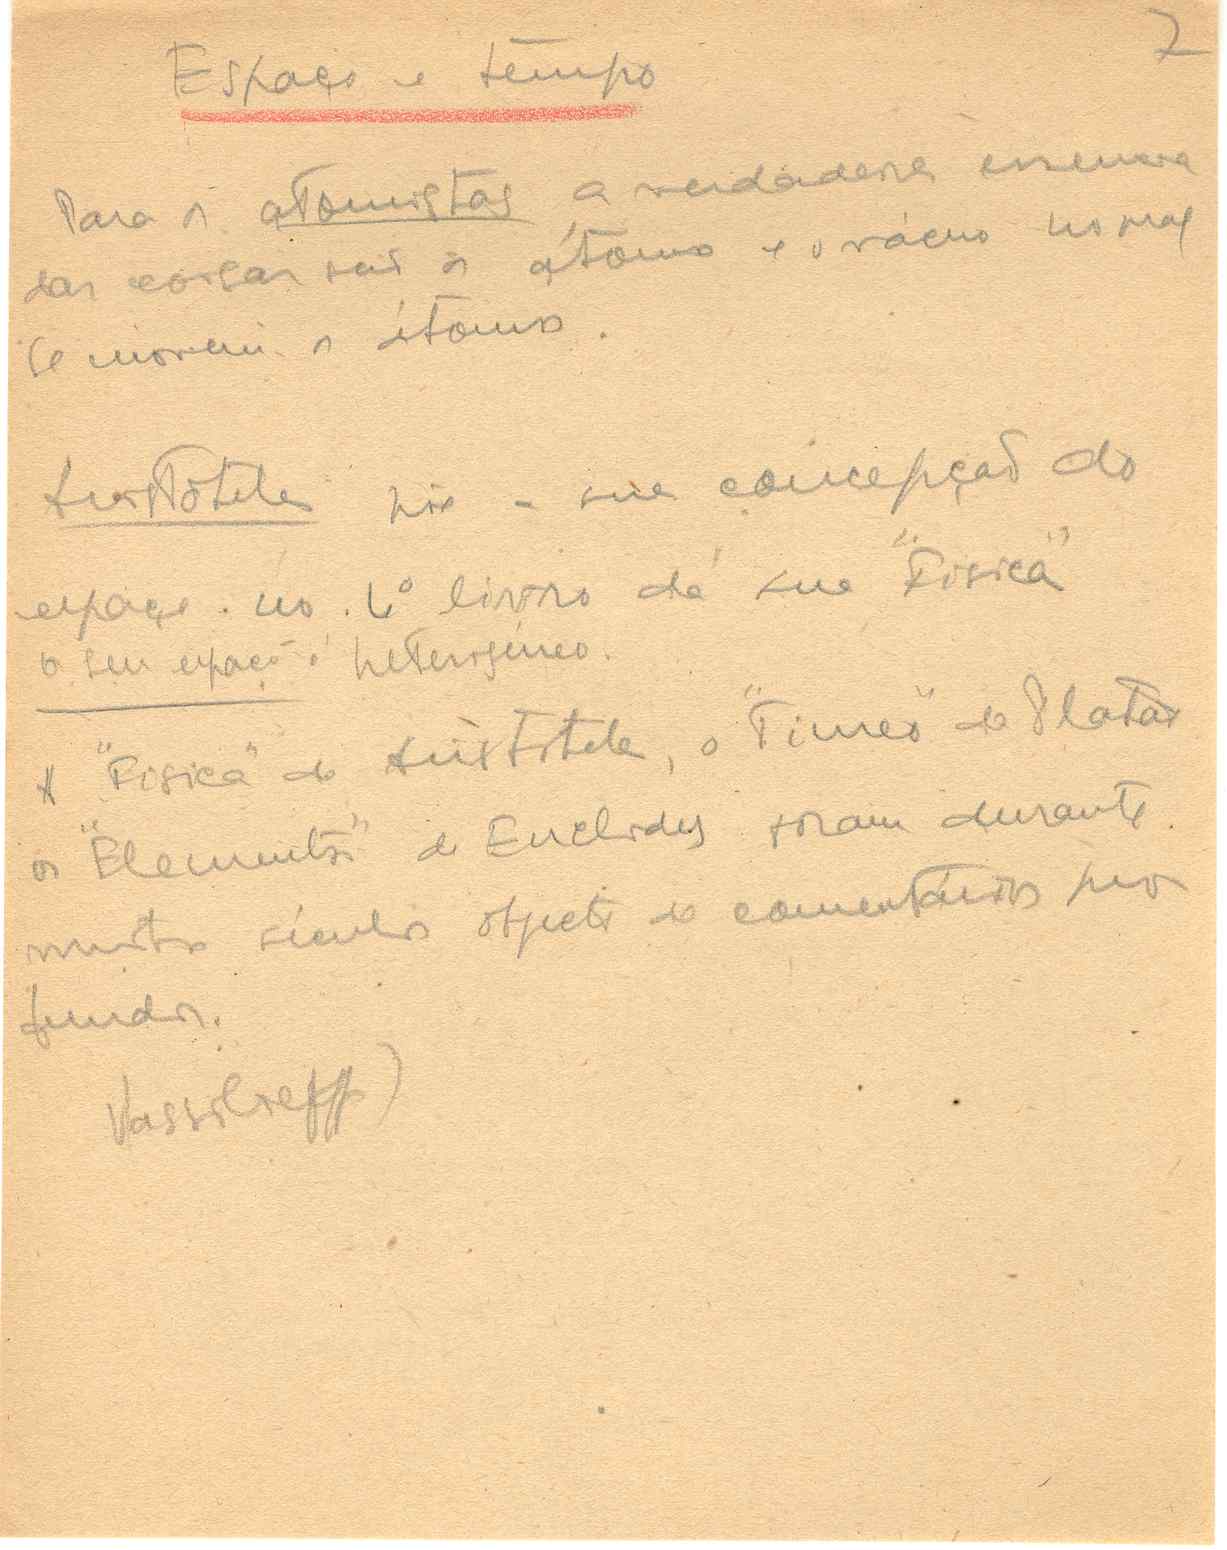 7
Espaço e tempo
Para os atomistas a verdadeira essencia
das coisas são os átomos e o vácuo no qual
se movem os átomos.
Aristóteles pôs a sua concepção do
espaço no 4º livro da sua "Fisica"
o seu espaço é heterogéneo.
A "Fisica" de Aristóteles, o "Timeo" de Platão
os "Elementos" de Euclides foram durante
muitos séculos objecto de comentários pro
fundos.
Vassilieff)